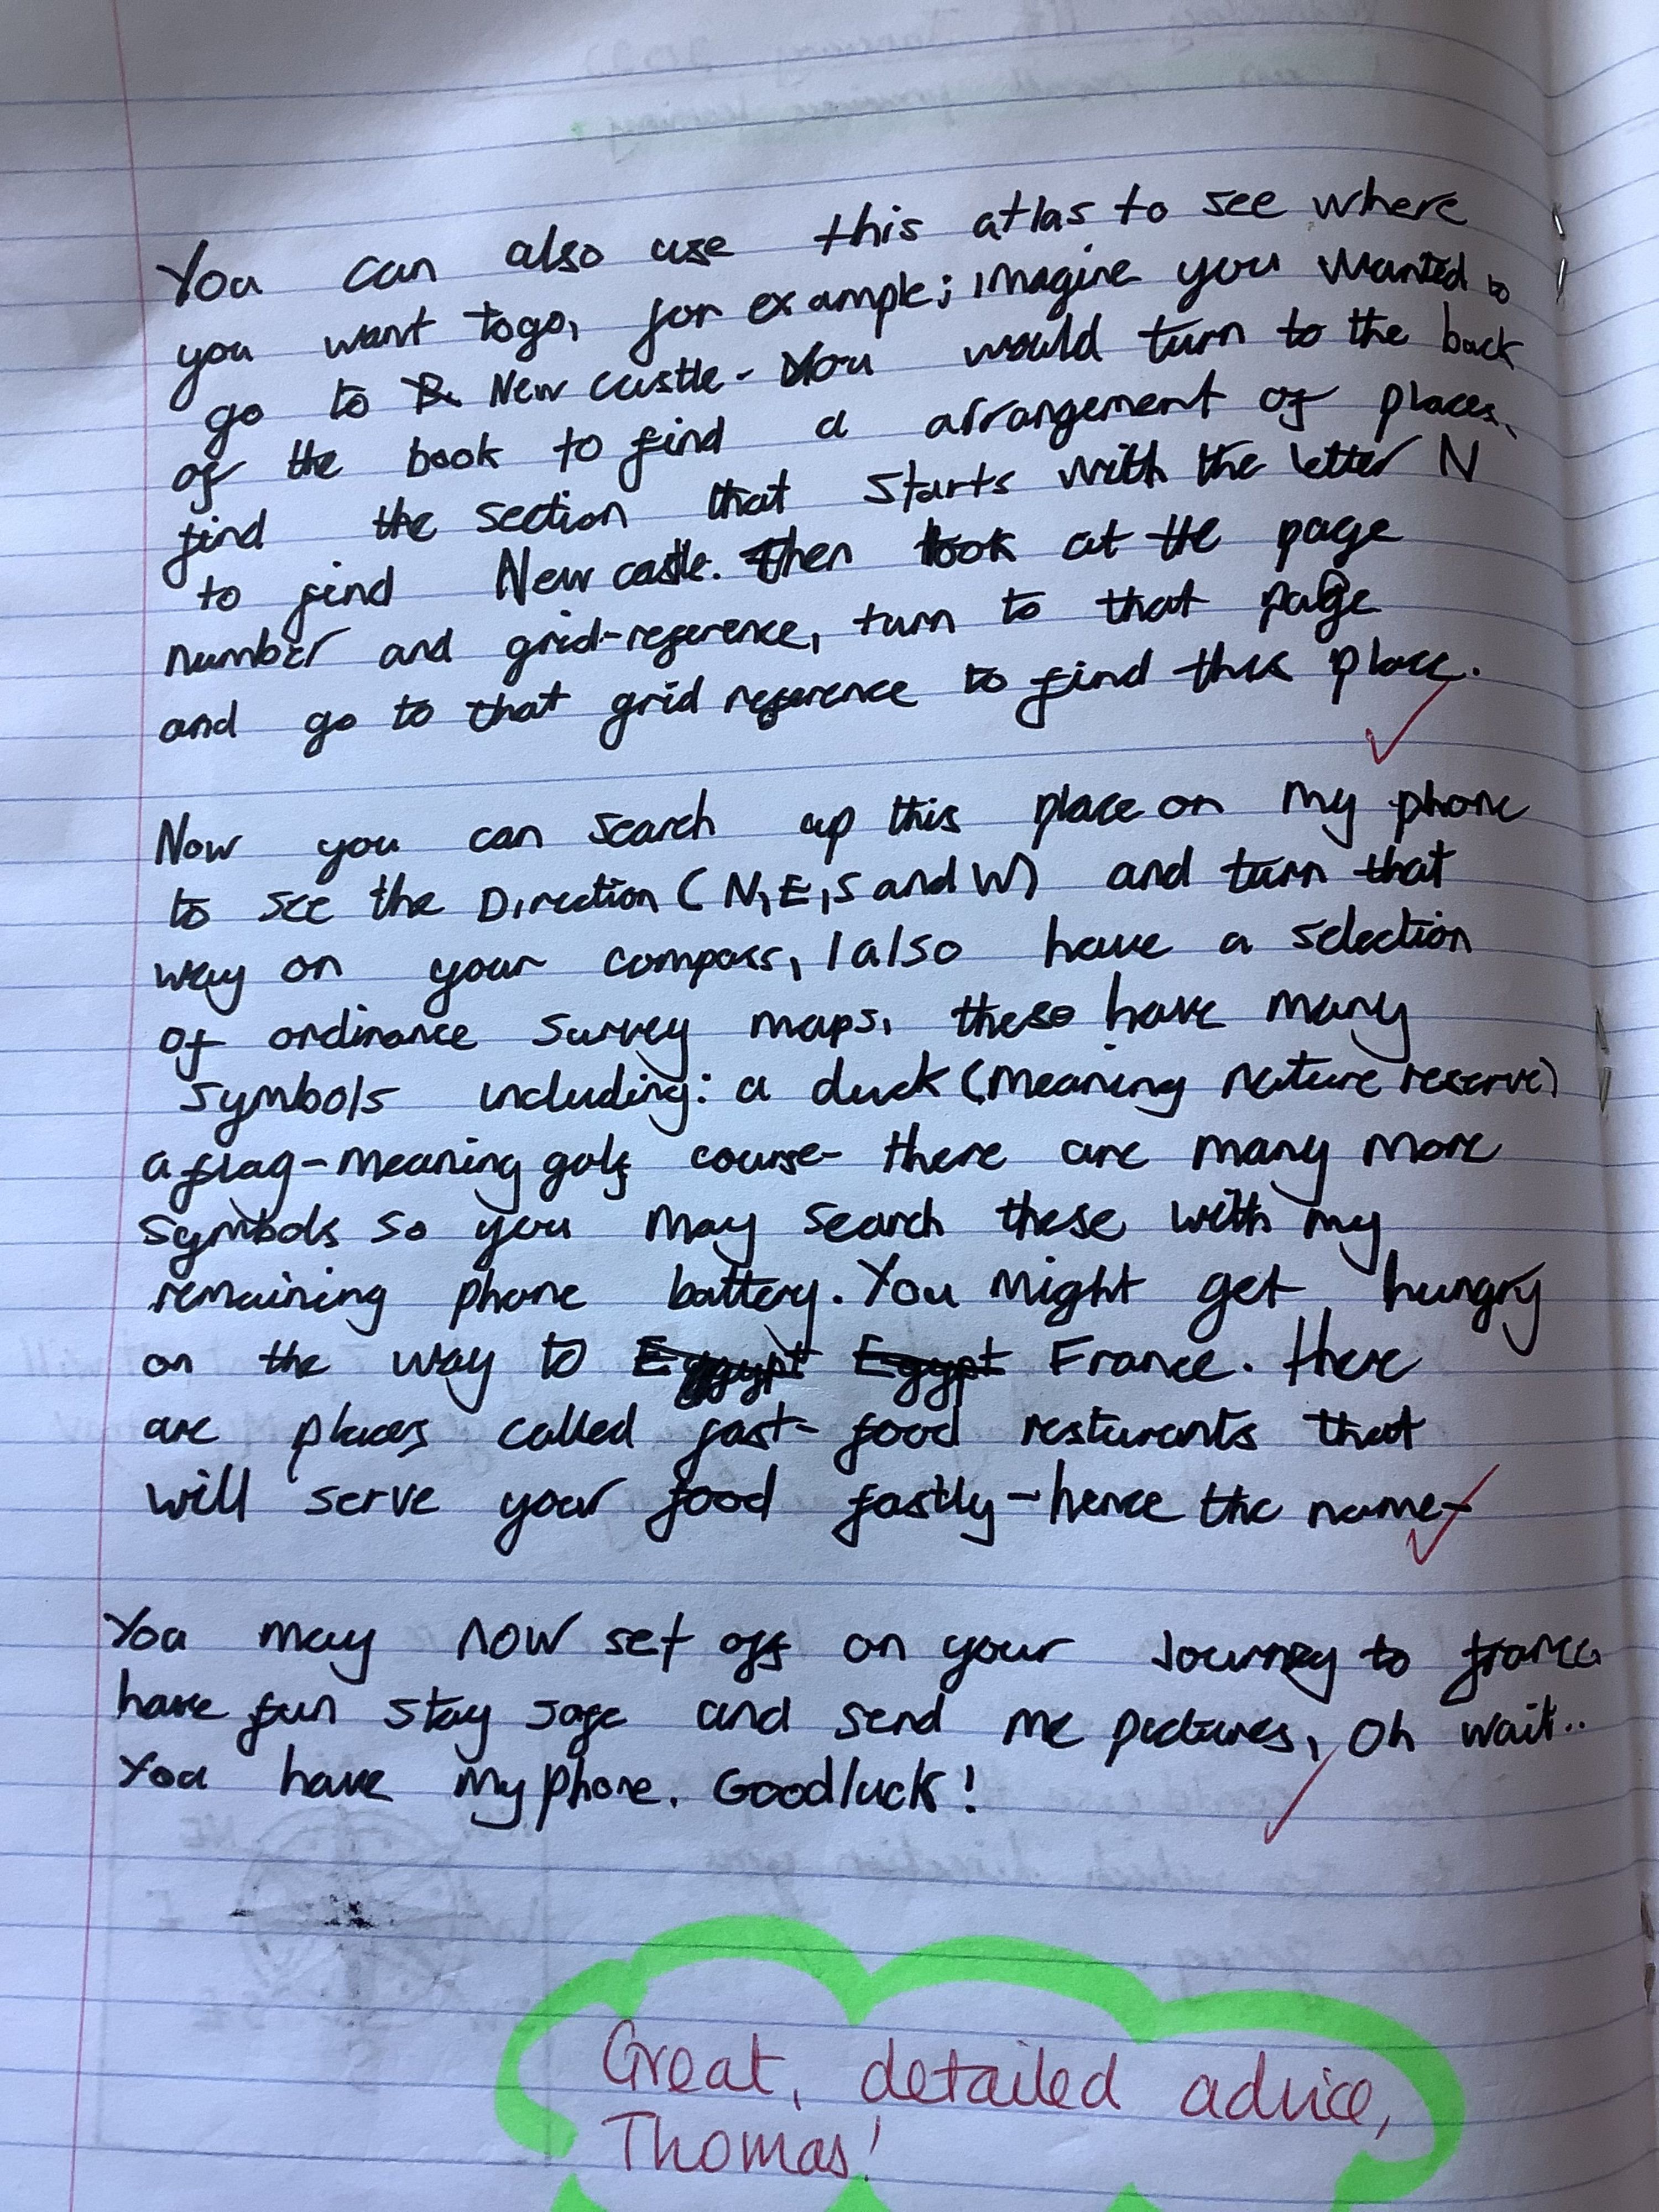 You can also use this atlas to see where
you want to go, for example; imagine you wanted to
go to New castle. You would turn to the back
of the book to find a arrangement of places,
find the section that starts with the letter N
to find New castle. Then look at the page
number and grid-reference, turn to that page
and go to that grid reference to find this place.
Now you can search up this place on my phone
to see the Direction (N,E,S and W) and turn that
way on your compass, I also have a selection
of ordinance survey maps, these have many
symbols including: a duck (meaning nature reserve)
a flag-meaning golf course- there are many more
symbols so you may search these with my
remaining phone battery. You might get hungry
on the way to Egypt Egypt France. There
are places called fast-food resturants that
will serve your food fastly-hence the name-
You may now set off on your Journey to france
have fun stay safe and send me pictures, Oh wait..
You have my phone. Goodluck!
Great, detailed advice,
Thomas!